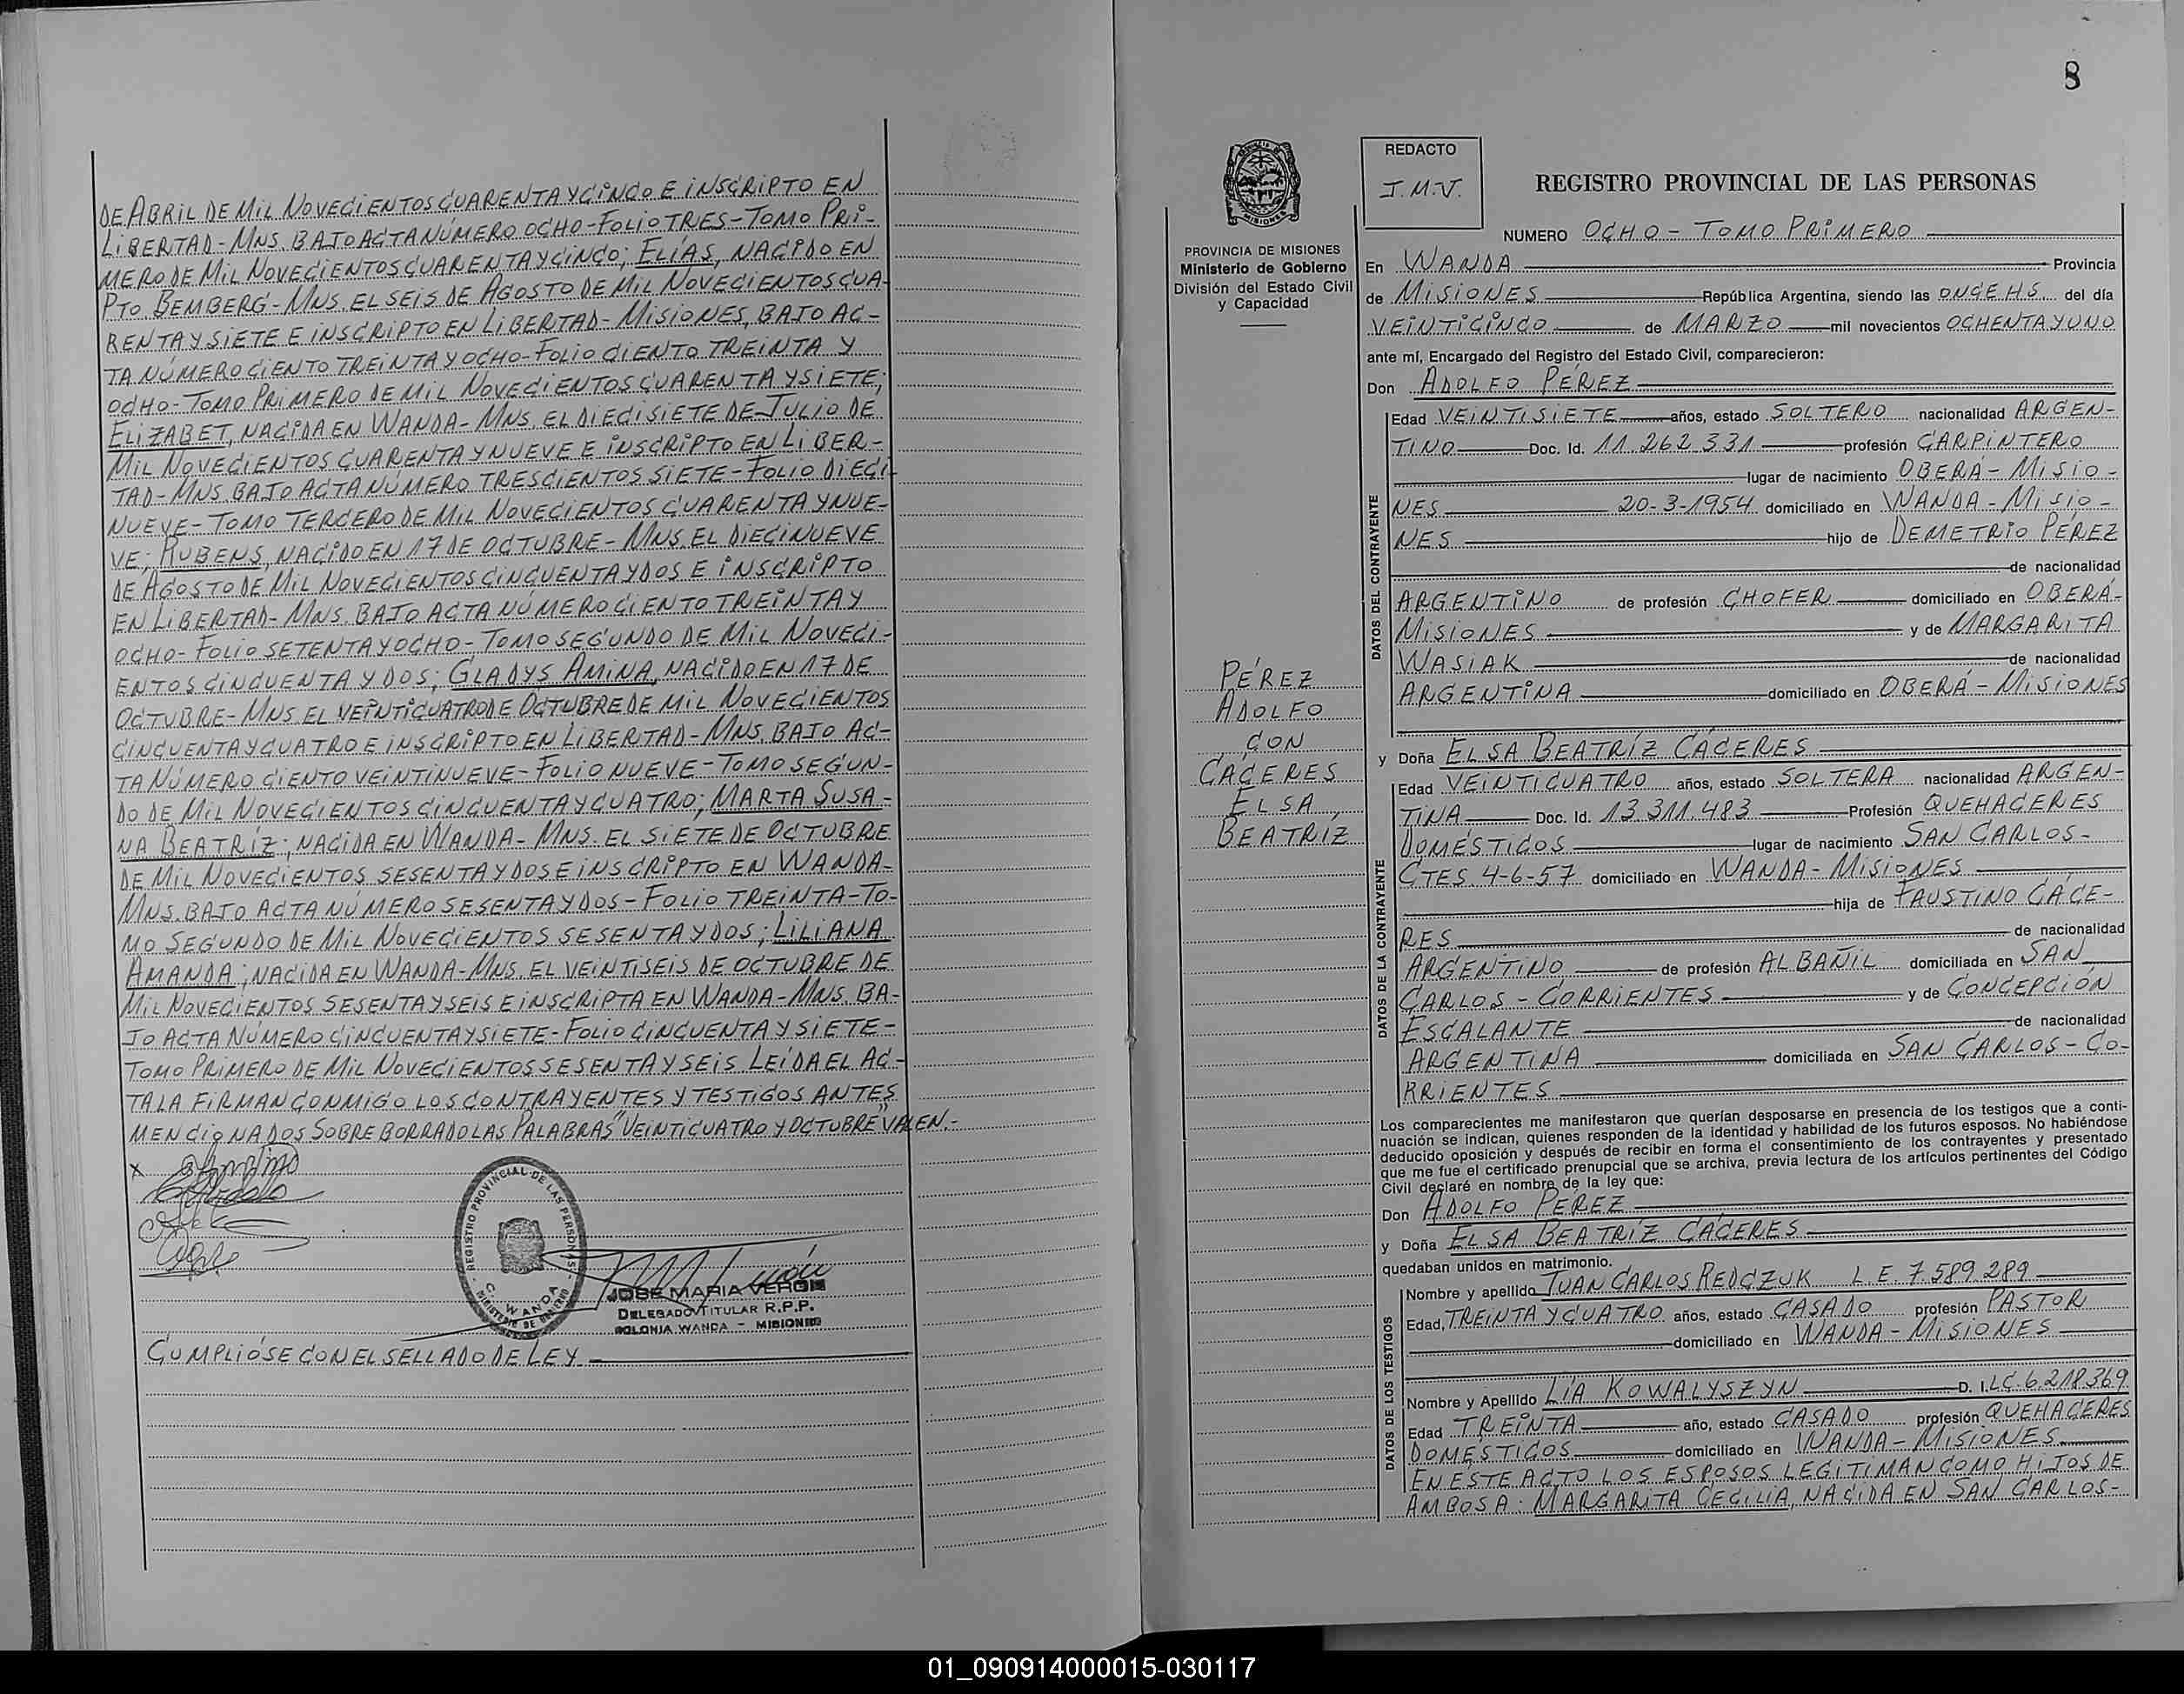 DE ABRIL DE MIL NOVECIENTOS CUARENTA Y CINCO E INSCRIPTO EN
LIBERTAD - MNS. BAJO ACTA NÚMERO OCHO - FOLIO TRES - TOMO PRI-
MERO DE MIL NOVECIENTOS CUARENTA Y CINCO; ELÍAS, NACIDO EN
PTO BEMBERG - MNS. EL SEIS DE AGOSTO DE MIL NOVECIENTOS CUA-
RENTA Y SIETE E INSCRIPTO EN LIBERTAD - MISIONES, BAJO AC-
TA NÚMERO CIENTO TREINTA Y OCHO - FOLIO CIENTO TREINTA Y
OCHO - TOMO PRIMERO DE MIL NOVECIENTOS CUARENTA Y SIETE;
ELIZABET, NACIDA EN WANDA - MNS. EL DIECISIETE DE JULIO DE
MIL NOVECIENTOS CUARENTA Y NUEVE E INSCRIPTO EN LIBER-
TAD - MNS. BAJO ACTA NÚMERO TRESCIENTOS SIETE - FOLIO DIECI
NUEVE - TOMO TERCERO DE MIL NOVECIENTOS CUARENTA Y NUE-
VE; RUBENS, NACIDO EN 17 DE OCTUBRE - MNS. EL DIECINUEVE
DE AGOSTO DE MIL NOVECIENTOS CINCUENTA Y DOS E INSCRIPTO
EN LIBERTAD - MNS. BAJO ACTA NÚMERO CIENTO TREINTA Y
OCHO - FOLIO SETENTA Y OCHO - TOMO SEGUNDO DE MIL NOVECI-
ENTOS CINCUENTA Y DOS; GLADYS AMINA, NACIDO EN 17 DE
OCTUBRE - MNS EL VEINTICUATRO DE OCTUBRE DE MIL NOVECIENTOS
CINCUENTA Y CUATRO E INSCRIPTO EN LIBERTAD - MNS. BAJO AC-
TA NÚMERO CIENTO VEINTINUEVE - FOLIO NUEVE - TOMO SEGUN-
DO DE MIL NOVECIENTOS CINCUENTA Y CUATRO; MARTA SUSA-
NA BEATRÍZ; NACIDA EN WANDA - MNS. EL SIETE DE OCTUBRE
DE MIL NOVECIENTOS SESENTA Y DOS E INSCRIPTO EN WANDA-
MNS. BAJO ACTA NÚMERO SESENTA Y DOS - FOLIO TREINTA - TO-
MO SEGUNDO DE MIL NOVECIENTOS SESENTA Y DOS; LILIANA
AMANDA; NACIDA EN WANDA - MNS. EL VEINTISEIS DE OCTUBRE DE
MIL NOVECIENTOS SESENTA Y SEIS E INSCRIPTA EN WANDA - MNS. BA-
JO ACTA NÚMERO CINCUENTA Y SIETE - FOLIO CINCUENTA Y SIETE -
TOMO PRIMERO DE MIL NOVECIENTOS SESENTA Y SEIS LEÍDA EL AC-
TA LA FIRMAN CONMIGO LOS CONTRAYENTES Y TESTIGOS ANTES
MENCIONADOS SOBRE BORRADO LAS PALABRAS "VEINTICUATRO Y OCTUBRE" VALEN.-
X
REGISTRO PROVINCIAL DE LAS PERSONAS
C. WANDA
MINISTERIO DE GOBIERNO
JOSE MARIA VERON
DELEGADO TITULAR R.P.P.
COLONIA WANDA - MISIONES
CUMPLIÓSE CON EL SELLADO DE LEY
8
PROVINCIA DE MISIONES
Ministerio de Gobierno
División del Estado Civil
y Capacidad
REDACTO
J.M.V.
REGISTRO PROVINCIAL DE LAS PERSONAS
NUMERO OCHO - TOMO PRIMERO
En WANDA Provincia
de MISIONES República Argentina, siendo las ONCE HS. del día
VEINTICINCO de MARZO mil novecientos OCHENTA Y UNO
ante mí, Encargado del Registro del Estado Civil, comparecieron:
Don ADOLFO PÉREZ
PÉREZ
ADOLFO
CON
CÁCERES
ELSA
BEATRÍZ
DATOS DEL CONTRAYENTE
Edad VEINTISIETE años, estado SOLTERO nacionalidad ARGEN-
TINO Doc. Id. 11.262.331 profesión CARPINTERO
lugar de nacimiento OBERÁ - MISIO-
NES 20-3-1954 domiciliado en WANDA - MISIO-
NES hijo de DEMETRIO PÉREZ
de nacionalidad
ARGENTINO de profesión CHOFER domiciliado en OBERÁ-
MISIONES y de MARGARITA
WASIAK de nacionalidad
ARGENTINA domiciliado en OBERÁ - MISIONES
y Doña ELSA BEATRÍZ CÁCERES
DATOS DE LA CONTRAYENTE
Edad VEINTICUATRO años, estado SOLTERA nacionalidad ARGEN-
TINA Doc. Id. 13.311.483 Profesión QUEHACERES
DOMÉSTICOS lugar de nacimiento SAN CARLOS-
CTES. 4-6-57 domiciliado en WANDA - MISIONES
hija de FAUSTINO CÁCE-
RES de nacionalidad
ARGENTINO de profesión ALBAÑIL domiciliada en SAN
CARLOS - CORRIENTES y de CONCEPCIÓN
ESCALANTE de nacionalidad
ARGENTINA domiciliada en SAN CARLOS - CO-
RRIENTES
Los comparecientes me manifestaron que querían desposarse en presencia de los testigos que a conti-
nuación se indican, quienes responden de la identidad y habilidad de los futuros esposos. No habiéndose
deducido oposición y después de recibir en forma el consentimiento de los contrayentes y presentado
que me fue el certificado prenupcial que se archiva, previa lectura de los artículos pertinentes del Código
Civil declaré en nombre de la ley que:
Don ADOLFO PÉREZ
y Doña ELSA BEATRÍZ CÁCERES
quedaban unidos en matrimonio.
DATOS DE LOS TESTIGOS
Nombre y apellido JUAN CARLOS REDCZUK L.E. 7.589.289
Edad, TREINTA Y CUATRO años, estado CASADO profesión PASTOR
domiciliado en WANDA - MISIONES
Nombre y Apellido LÍA KOWALYSZYN D. I. LC. 6.218.369
Edad TREINTA año, estado CASADO profesión QUEHACERES
DOMÉSTICOS domiciliado en WANDA - MISIONES
EN ÉSTE ACTO LOS ESPOSOS LEGITIMAN COMO HIJOS DE
AMBOS A: MARGARITA CECILIA, NACIDA EN SAN CARLOS-
01_090914000015-030117